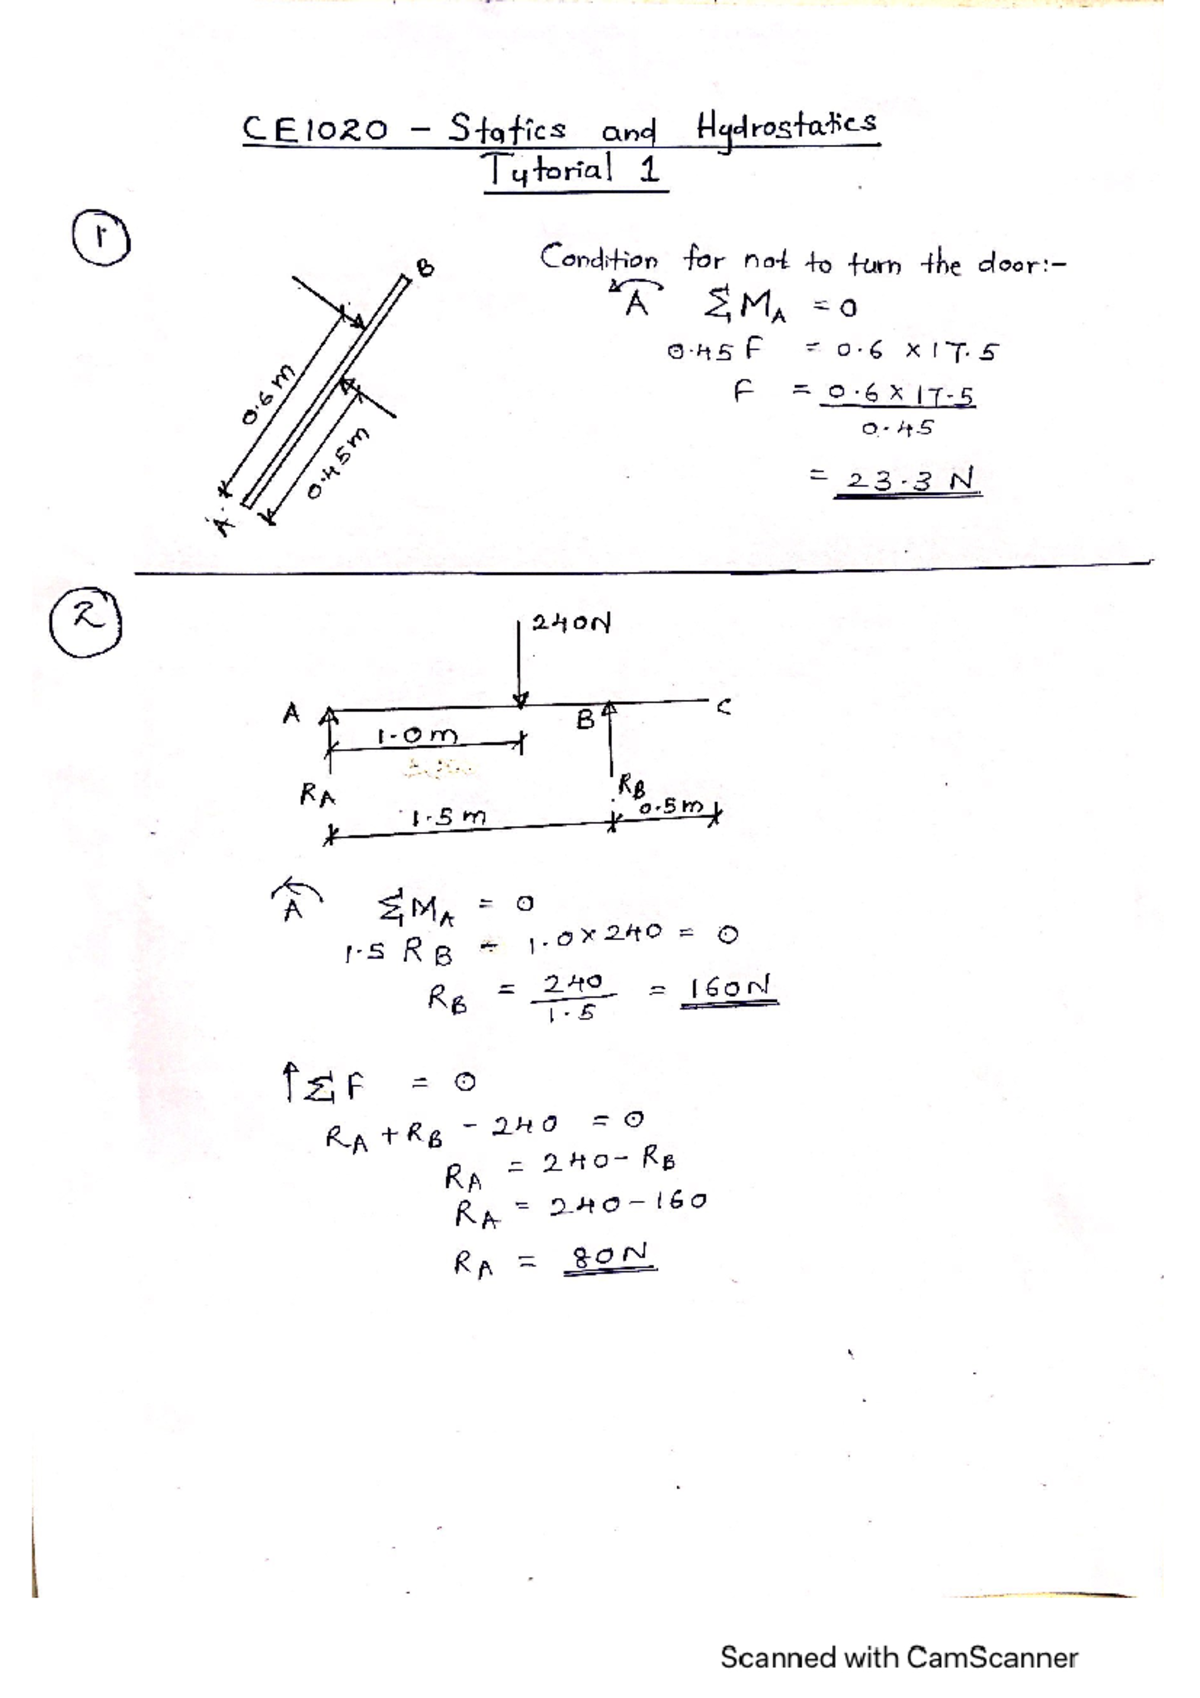 CE1020 - Statics and Hydrostatics
Tutorial 1
1
Condition for not to turn the door:-
A ΣM_A = 0
0.45 F = 0.6 × 17.5
F = 0.6 × 17.5
0.45
= 23.3 N
B
0.6 m
0.45 m
A
2
240N
A B C
1.0 m
R_A R_B
1.5 m 0.5 m
A ΣM_A = 0
1.5 R_B - 1.0 × 240 = 0
R_B = 240 = 160N
1.5
↑ΣF = 0
R_A + R_B - 240 = 0
R_A = 240 - R_B
R_A = 240 - 160
R_A = 80N
Scanned with CamScanner